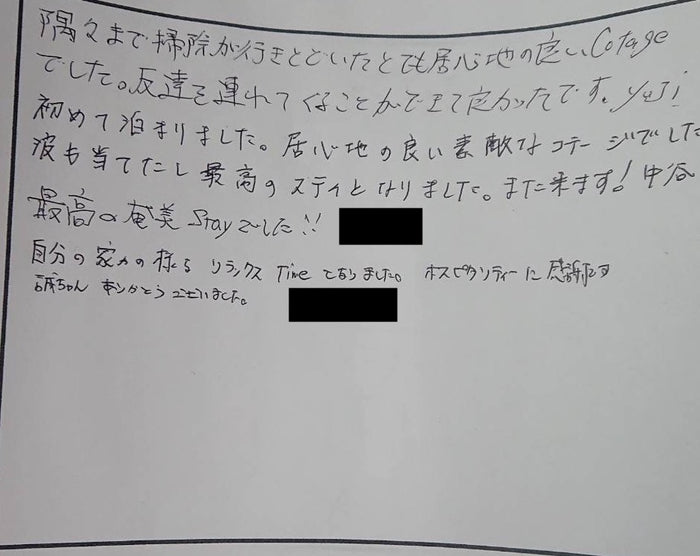 隅々まで掃除が行きとどいたとても居心地の良いCotage
でした。友達を連れてくることができて良かったです。YuJi
初めて泊まりました。居心地の良い素敵なコテージでした
波も当てたし最高のステイとなりました。また来ます! 中谷
最高の奄美Stayでした!!
自分の家かの様なリラックスTimeとなりました。ホスピタリティーに感謝です
ちゃんありがとうございました。